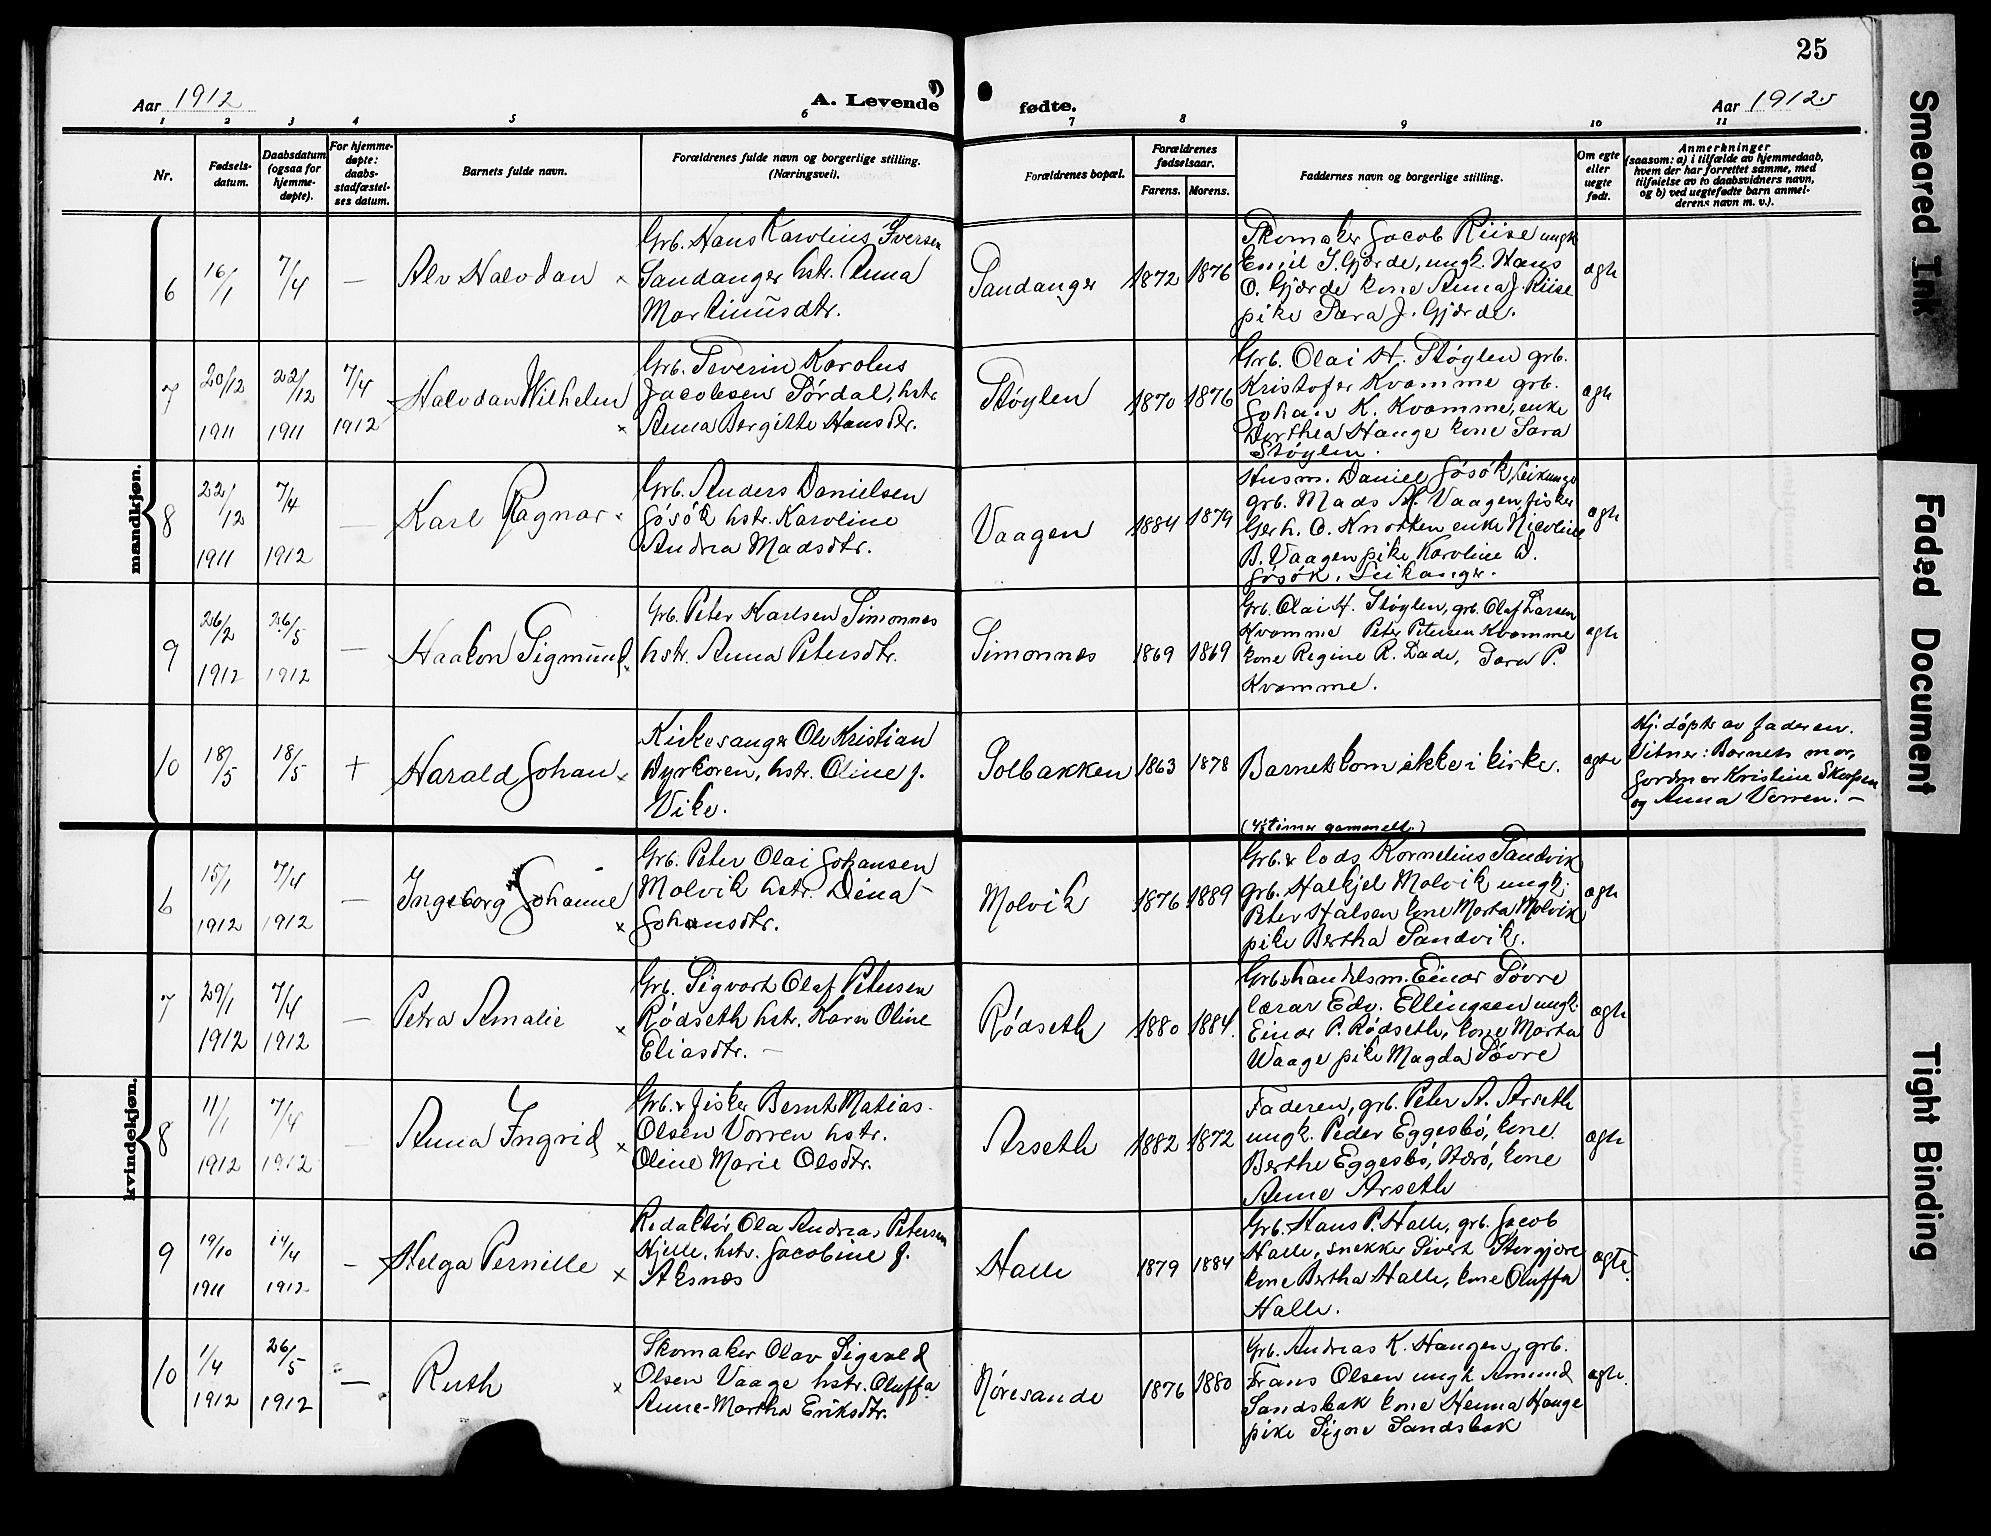 25
Aar 1912
A. Levende
fødte.
Aar 1912.
1 2 3 4 5 6 7 8 9 10 11
Nr.
Fødsels-
datum.
Daabsdatum
(ogsaa for
hjemme-
døpte).
For hjemme-
døpte:
daabs-
stadfæstel-
ses datum.
Barnets fulde navn.
Forældrenes fulde navn og borgerlige stilling.
(Næringsvei).
Forældrenes bopæl.
Forældrenes
fødselsaar.
Farens.
Morens.
Faddernes navn og borgerlige stilling.
Om egte
eller
uegte
født.
Anmerkninger
(saasom: a) i tilfælde av hjemmedaab,
hvem der har forrettet samme, med
tilføielse av to daabsvidners navn,
og b) ved uegtefødte barn anmel-
derens navn m. v.).
mandkjøn.
6
16/1
7/4
—
Alv Halvdan ×
Grb. Hans Karolius Iversen
Sandanger hstr. Anna
Martinusdtr.
Sandanger
1872
1876
Skomaker Jacob Riise ungk
Emil J. Gjærde, ungk. Hans
O. Gjærde kone Anna J. Riise
pike Sara J. Gjærde.
ægte
7
20/12
1911
22/12
1911
7/4
1912
Halvdan Wilhelm
×
Grb. Severin Karolus
Jacobsen Sørdal, hstr
Anna Bergitte Hansdtr.
Støylen
1870
1876
Grb. Olai H. Støylen grb.
Kristofer Kvamme grb.
Johan K. Kvamme, enke
Dorthea Hauge kone Sara
Støylen.
ægte
8
22/12
1911
7/4
1912
—
Karl Ragnar ×
Grb. Anders Danielsen
Jøsøk hstr. Karoline
Andrea Madsdtr.
Vaagen
1884
1879
Husm. Daniel Jøsøk, Leikange
grb. Mads M. Vaagen, fisker
Gerh. O. Knotten enke Nicoline
B. Vaagen pike Karoline D.
Jøsøk, Leikanger.
ægte
9
26/2
1912
26/5
1912
—
Haakon Sigmund
×
Grb. Peter Karlsen Simonnes
hstr. Anna Petersdtr.
Simonnes
1869
1869
Grb. Olai H. Støylen, grb. Olaf Larsen
Kvamme Peter Petersen Kvamme
kone Regine R. Dade, Sara P.
Kvamme.
ægte
10
18/5
18/5
+
Harald Johan ×
Kirkesanger Ole Kristian
Dyrkoren, hstr. Oline f.
Vike.
Solbakken
1863
1878
Barnet kom ikke i kirke.
(4½ timer gammelt.)
ægte
Hj. døpt av faderen.
Vitner: Barnets mor,
Jordmor Kristine Skorpen
og Anna Vorren. —
kvindekjøn.
6
15/1
1912
7/4
1912
—
Ingeborg Johanne
×
Grb. Peter Olai Johansen
Molvik hstr. Dina
Johansdtr.
Molvik
1876
1889
Grb & lods Kornelius Sandvik
grb. Halkjel Molvik ungk.
Peter Halsen kone Marta Molvik
pike Bertha Sandvik.
ægte
7
29/1
1912
7/4
1912
—
Petra Amalie ×
Grb. Sigvart Olaf Petersen
Rødseth hstr. Karn Oline
Eliasdtr. —
Rødseth
1880
1884.
Grb & handelsm. Einar Søvre
lærar Edv. Ellingsen ungk.
Einar P. Rødseth, kone Marta
Waage pike Magda Søvre
ægte
8
11/1
1912
7/4
1912
—
Anna Ingrid ×
Grb. & fisker Bernt Matias
Olsen Vorren hstr.
Oline Marie Olsdtr.
Arseth
1882
1872
Faderen, grb. Peter A. Arseth
ungk. Peder Eggesbø, kone
Berthe Eggesbø, Herø, kone
Anne Arseth
ægte
9
19/10
1911
14/4
1912
-
Helga Pernille ×
Redaktør Ola Andreas Petersen
Hjelle, hstr. Jacobine f.
Aksnes
Halle
1879
1884
Grb. Hans P. Halle, grb. Jacob
Halle, snekker Sivert Storgjære
kone Bertha Halle, kone Oluffa
Halle.
ægte.
10
1/4
1912
26/5
1912
—
Ruth ×
Skomaker Olav Sigvald
Olsen Vaage hstr. Oluffa
Anne-Martha Eriksdtr.
Nøresande
1876
1880
Grb. Andreas K. Haugen, grb.
Frans Olsen ungk Amund
Sandsbak kone Henna Hauge
pike Signe Sandsbak
ægte.
Smeared Ink
Faded Document
Tight Binding